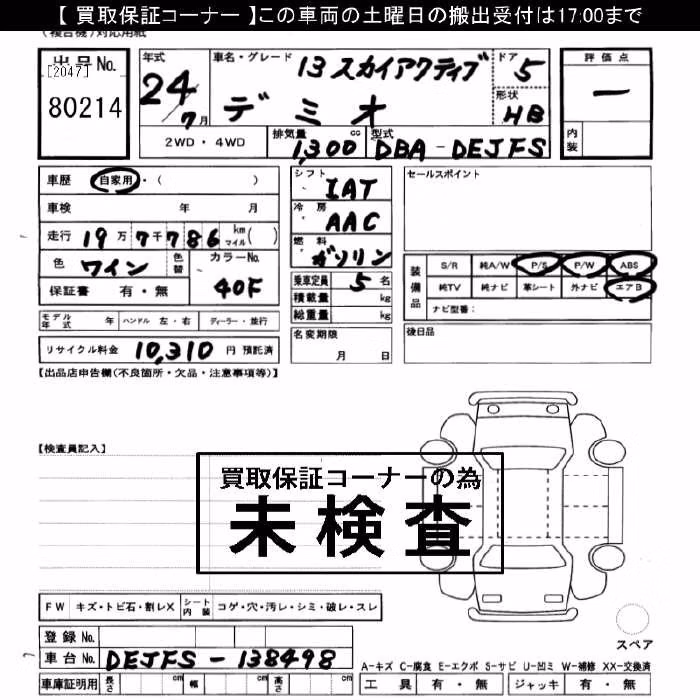 【 買取保証コーナー 】この車両の土曜日の搬出受付は17:00まで
(複合機)対応用紙
出品No.
[2047]
80214
年式
24
7月
車名・グレード
13 スカイアクティブ
デミオ
ドア
5
形状
HB
2WD・4WD
排気量
1,300
cc
型式
DBA - DEJFS
評価点
一
内装
車歴
自家用・( )
車検 年 月
走行 19万7千786 km マイル( )
色 ワイン
色替
カラーNo.
40F
保証書 有・無
シフト
IAT
冷房
AAC
燃料
ガソリン
乗車定員 5 名
積載量 kg
総重量 kg
セールスポイント
装備品
S/R 純A/W P/S P/W ABS
純TV 純ナビ 革シート 外ナビ エアB
ナビ型番:
モデル年式 年 ハンドル 左・右 ディーラー・並行
リサイクル料金 10,310 円 預託済
名変期限
月 日
後日品
【出品店申告欄(不良箇所・欠品・注意事項等)】
【検査員記入】
買取保証コーナーの為
未検査
FW キズ・トビ石・割レX
シート内装 コゲ・穴・汚レ・シミ・破レ・スレ
登録 No.
車台 No. DEJFS - 138498
車庫証明用 長さ cm 幅 cm 高さ cm
スペア
A-キズ C-腐食 E-エクボ S-サビ U-凹ミ W-補修 XX-交換済
工具 有・無 ジャッキ 有・無